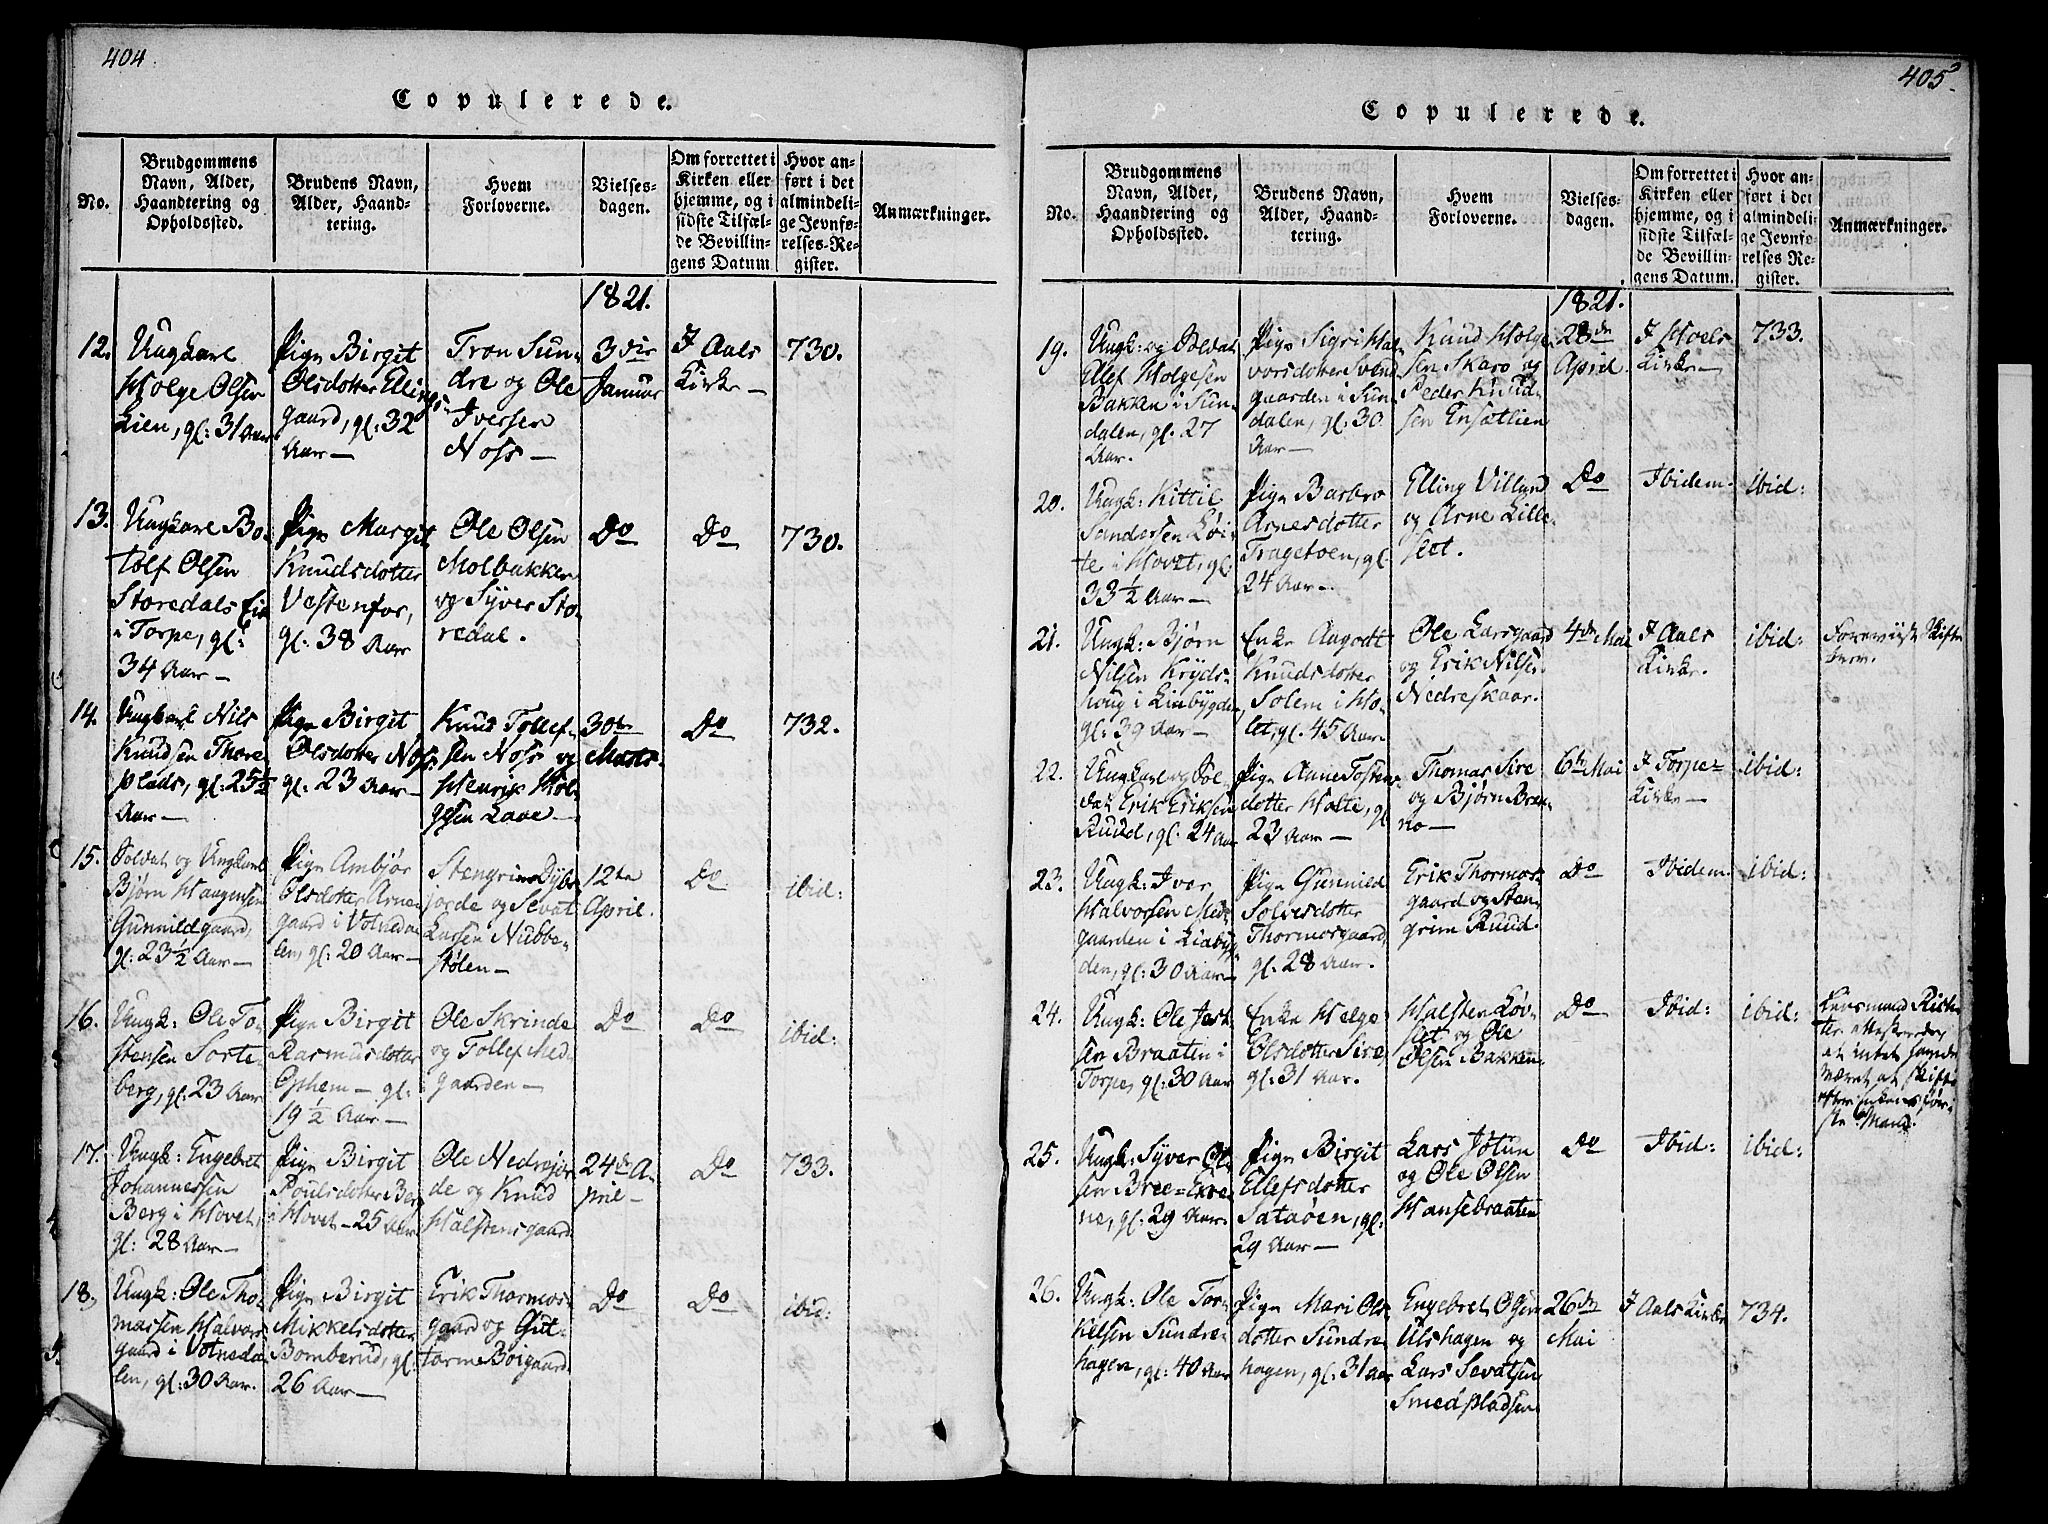 404
Copulerede.
No.
Brudgommens
Navn, Alder,
Haandtering og
Opholdssted.
Brudens Navn,
Alder, Haand-
tering.
Hvem
Forloverne.
Vielses-
dagen.
Om forrettet i
Kirken eller
hjemme, og i
sidste Tilfæl-
de Bevillin-
gens Datum
Hvor an-
ført i det
almindeli-
ge Jevnfø-
relses-Re-
gister.
Anmærkninger.
1821.
12.
Ungkarl
Holge Olsen
Lien, gl: 31 Aar
Pige Birgit
Olsdotter Ellings
gaard, gl: 32
Aar —
Tron Sun-
dre og Ole
Iversen
Noss —
3die
Januar
I Aals
Kirke —
730.
13.
Ungkarl Bo-
tolf Olsen
Storedals Eie
i Torpe, gl:
34 Aar —
Pige Margit
Knudsdotter
Vestenfor,
gl: 38 Aar
Ole Olsen
Molbakken
og Syver Sto-
redal.
Do
Do
730.
14.
Ungkarl Nils
Knudsen Thore
plads, gl: 25½
Aar —
Pige Birgit
Olsdotter Noss
gl: 23 Aar —
Knud Tollef-
sen Noss og
Henrik Hol-
gesen Laae —
30te
Marts.
Do
732.
15.
Soldat og Ungkarl
Bjørn Haagensen
Gunnildgaard,
gl: 23½ Aar —
Pige Ambjør
Olsdotter Arne-
gaard i Votneda-
len, gl: 20 Aar —
Stengrim Dybe-
jorde og Sevat
Larsen Nubbe-
stølen —
12te
April.
Do
ibid:
16.
Ungk: Ole To-
stensen Sorte-
berg, gl: 23 Aar
Pige Birgit
Rasmusdotter
Opheim — gl:
19½ Aar —
Ole Skrinde
og Tollef Med-
gaarden —
Do
Do
ibid:
17.
Ungk: Engebret
Johannessen
Berg i Hovet,
gl: 28 Aar —
Pige Birgit
Poulsdotter Berg
i Hovet — 25 Aar
Ole Nedrejor-
de og Knud
Halstensgaard
24de A-
pril —
Do
733.
18.
Ungk: Ole Tho-
massen Halvors-
gaard i Votneda-
len, gl: 30 Aar.
Pige Birgit
Mikkelsdotter
Bomberud, gl:
26 Aar —
Erik Thormos-
gaard og Gut-
torm Böigaard
Do
Do
ibid:
405
Copulerede.
No.
Brudgommens
Navn, Alder,
Haandtering og
Opholdssted.
Brudens Navn,
Alder, Haand-
tering.
Hvem
Forloverne.
Vielses-
dagen.
Om forrettet i
Kirken eller
hjemme, og i
sidste Tilfæl-
de Bevillin-
gens Datum.
Hvor an-
ført i det
almindeli-
ge Jevnfø-
relses Re-
gister.
Anmærkninger.
1821.
19.
Ungk: og Soldat
Ellef Holgesen
Bakken i Sun-
dalen, gl: 27
Aar.
Pige Sigri Hal-
vorsdotter Svend
gaarden i Sun-
dalen, gl: 30
Aar —
Knud Holge-
sen Skaro og
Peder Knud-
sen Ensætlien
28de
April
I Hoels
Kirke —
733.
20.
Ungk: Kittil
Sandersen Løi-
te i Hovet, gl:
33½ Aar —
Pige Barbro
Arnesdotter
Tragetoen, gl:
24 Aar —
Elling Villand
og Arne Lille-
slet.
Do
Ibidem.
ibid:
21.
Ungk: Bjørn
Nilsen Kryds-
houg i Liabygden,
gl: 39 Aar —
Enke Aagodt
Knudsdotter
Solem i Ho-
let, gl: 45 Aar.
Ole Larsgaard
og Erik Nilsen
Nedreskaar.
4de Mai
I Aals
Kirke.
ibid:
Foreviist Skifte
brev.
22.
Ungkarl og Sol-
dat Erik Eriksen
Ruud, gl: 24 Aar
Pige Anne Tostens-
dotter Holte, gl:
23 Aar —
Thomas Sire
og Bjørn Bræn-
no —
6te Mai
I Torpe-
Kirke —
ibid:
23.
Ungk: Iver
Halvorsen Med-
gaarden i Liabyg-
den, gl: 30 Aar —
Pige Gunnild
Solvesdotter
Thormosgaard,
gl: 28 Aar.
Erik Thormos-
gaard og Sten-
grim Ruud.
Do
Ibidem
ibid:
24.
Ungk: Ole Jost-
sen Braaten i
Torpe, gl: 30 Aar
Enke Helge
Olsdotter Sire,
gl: 31 Aar.
Halsten Løv-
slet og Ole
Olsen Bakken
Do
Ibid:
ibid:
Lensmand Rich-
ter attesterede,
at intet
været at skifte
efter Enkens før-
ste Mand.
25.
Ungk: Syver Ol-
sen Bree=Exre-
ne, gl: 29 Aar.
Pige Birgit
Ellefsdotter
Sataøen, gl:
29 Aar —
Lars Jøtun
og Ole Olsen
Hansebraaten
Do
Ibid:
ibid:
26.
Ungk: Ole Tor-
kelsen Sundre-
hagen, gl: 40 Aar
Pige Mari Ols-
dotter Sundre-
hagen, gl: 31 Aar
Engebret Olsen
Ulshagen og
Lars Sevatsen
Smedpladsen
26de
Mai
I Aals Kirke
734.